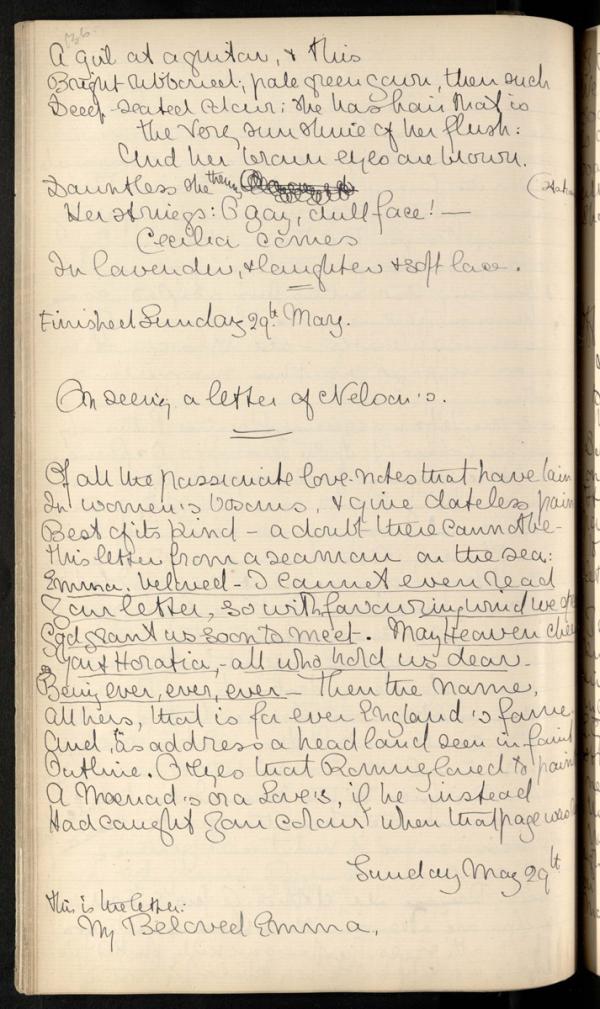 136.
A girl at a guitar, & this
Bright ribboned; pale green gown, then such
Deep-seated colour: she has hair that is
the very sunshine of her flush:
And her brown eyes are brown.
Dauntless she thrums
Her strings: O gay, dull face! —
Cecilia comes
In lavender, & laughter & soft lace.
Finished Sunday 29th May.
On seeing a letter of Nelson's.
Of all the passionate love-notes that have lain
In women's bosoms, & give dateless pain
Best of its kind – a doubt there cannot be –
This letter from a seaman on the sea:
Emma, beloved – I cannot even read
Your letter, so with favouring wind we
God grant us soon to meet. May Heaven
You & Horatia, – all who hold us dear –
Being ever, ever, ever – Then the name,
All hers, that is for ever England's fame
And, as address a headland seen in faint
Outline. O Eyes that Romney loved to paint
A Maenad's or a Love's, if he instead
Had caught your colour when that page was
Sunday May 29th
This is the letter:
My Beloved Emma,